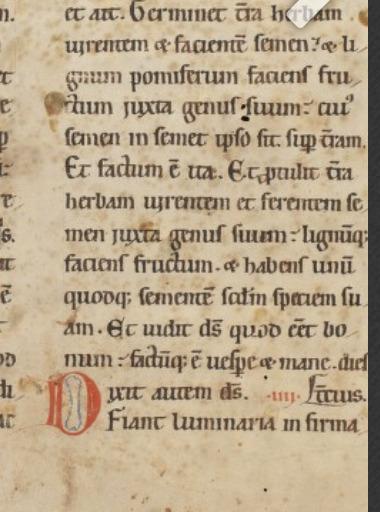 et ait. Germinet t̄ra herbam
uirentem & facientē semen: & li
gnum pomiferum faciens fru
ctum juxta genus suum: cuiꝰ
semen in semet ipso sit sup t̄ram.
Et factum ē ita. Et ꝓtulit t̄ra
herbam uirentem et ferentem se
men juxta genus suum: lignūq;
faciens fructum. & habens unū
quodq; sementē scđm speciem su
am. Et uidit d̄s quod eēt bo
num: factūq; ē uesꝑe & mane. dies
Dixit autem d̄s. .iiii. t̄cius.
Fiant luminaria in firma